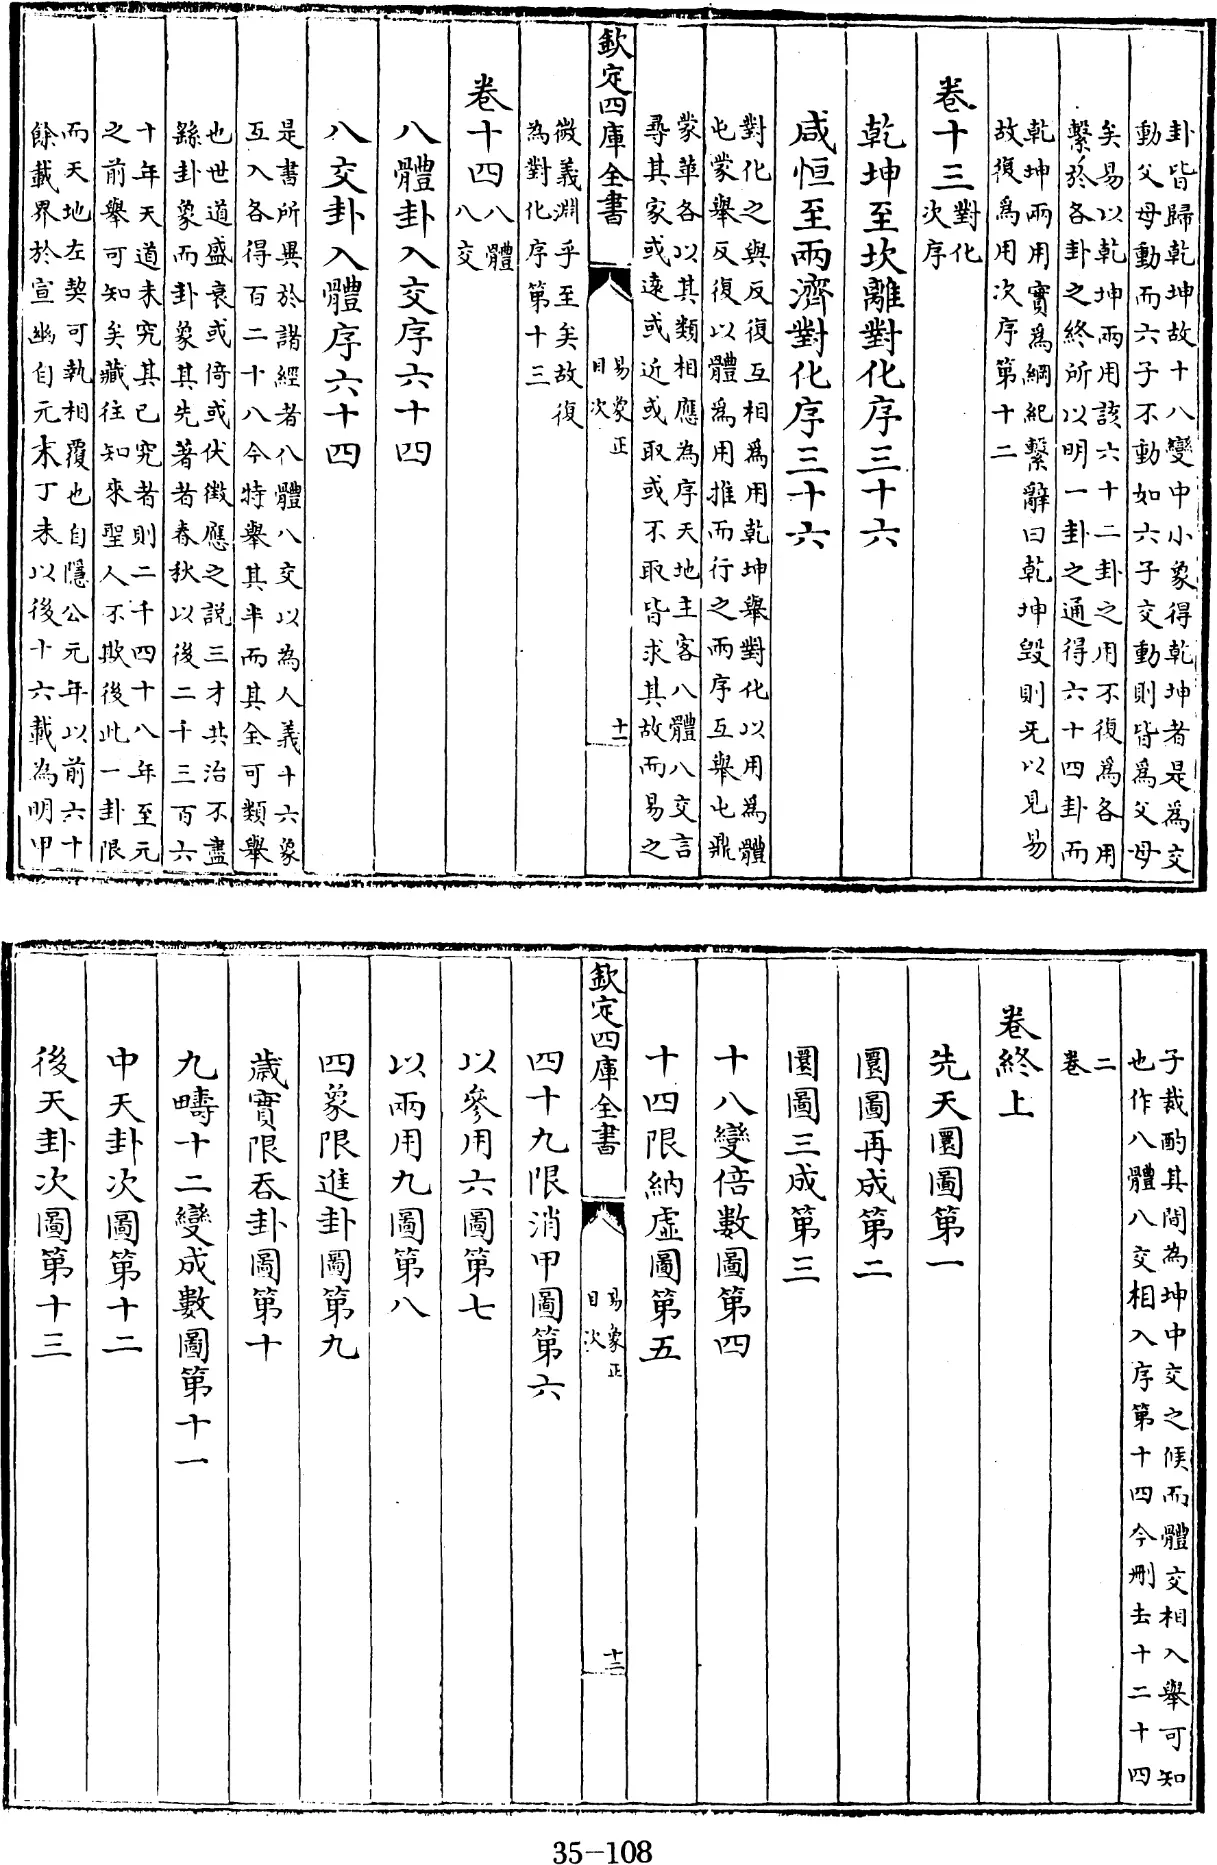 卦皆歸乾坤故十八變中小象得乾坤者是為交
動父母動而六子不動如六子交動則皆為父母
矣易以乾坤兩用該六十二卦之用不復為各用
繫於各卦之終所以明一卦之通得六十四卦而
乾坤兩用實為綱紀繫辭曰乾坤毀則旡以見易
故復為用次序第十二
卷十三對化
次序
乾坤至坎離對化序三十六
咸恒至兩濟對化序三十六
對化之與反復互相為用乾坤舉對化以用為體
屯蒙舉反復以體為用推而行之兩序互舉屯鼎
蒙革各以其類相應為序天地主客八體八交言
尋其家或遠或近或取或不取皆求其故而易之
欽定四庫全書
易象正
目次
十一
微義淵乎至矣故復
為對化序第十三
卷十四八體
八交
八體卦入交序六十四
八交卦入體序六十四
是書所異於諸經者八體八交以為人義十六象
互入各得百二十八今特舉其半而其全可類舉
也世道盛衰或倚或伏徵應之說三才共治不盡
繇卦象而卦象其先著者春秋以後二千三百六
十年天道未究其已究者則二千四十八年至元
之前舉可知矣藏往知來聖人不欺後此一卦限
而天地左契可執相覆也自隱公元年以前六十
餘載界於宣幽自元末丁未以後十六載為明甲
子裁酌其間為坤中交之候而體交相入舉可知
也作八體八交相入序第十四今刪去十二十四
二
卷
卷終上
先天圜圖第一
圜圖再成第二
圜圖三成第三
十八變倍數圖第四
十四限納虛圖第五
欽定四庫全書
易象正
目次
十二
四十九限消甲圖第六
以參用六圖第七
以兩用九圖第八
四象限進卦圖第九
歲實限吞卦圖第十
九疇十二變成數圖第十一
中天卦次圖第十二
後天卦次圖第十三
35-108